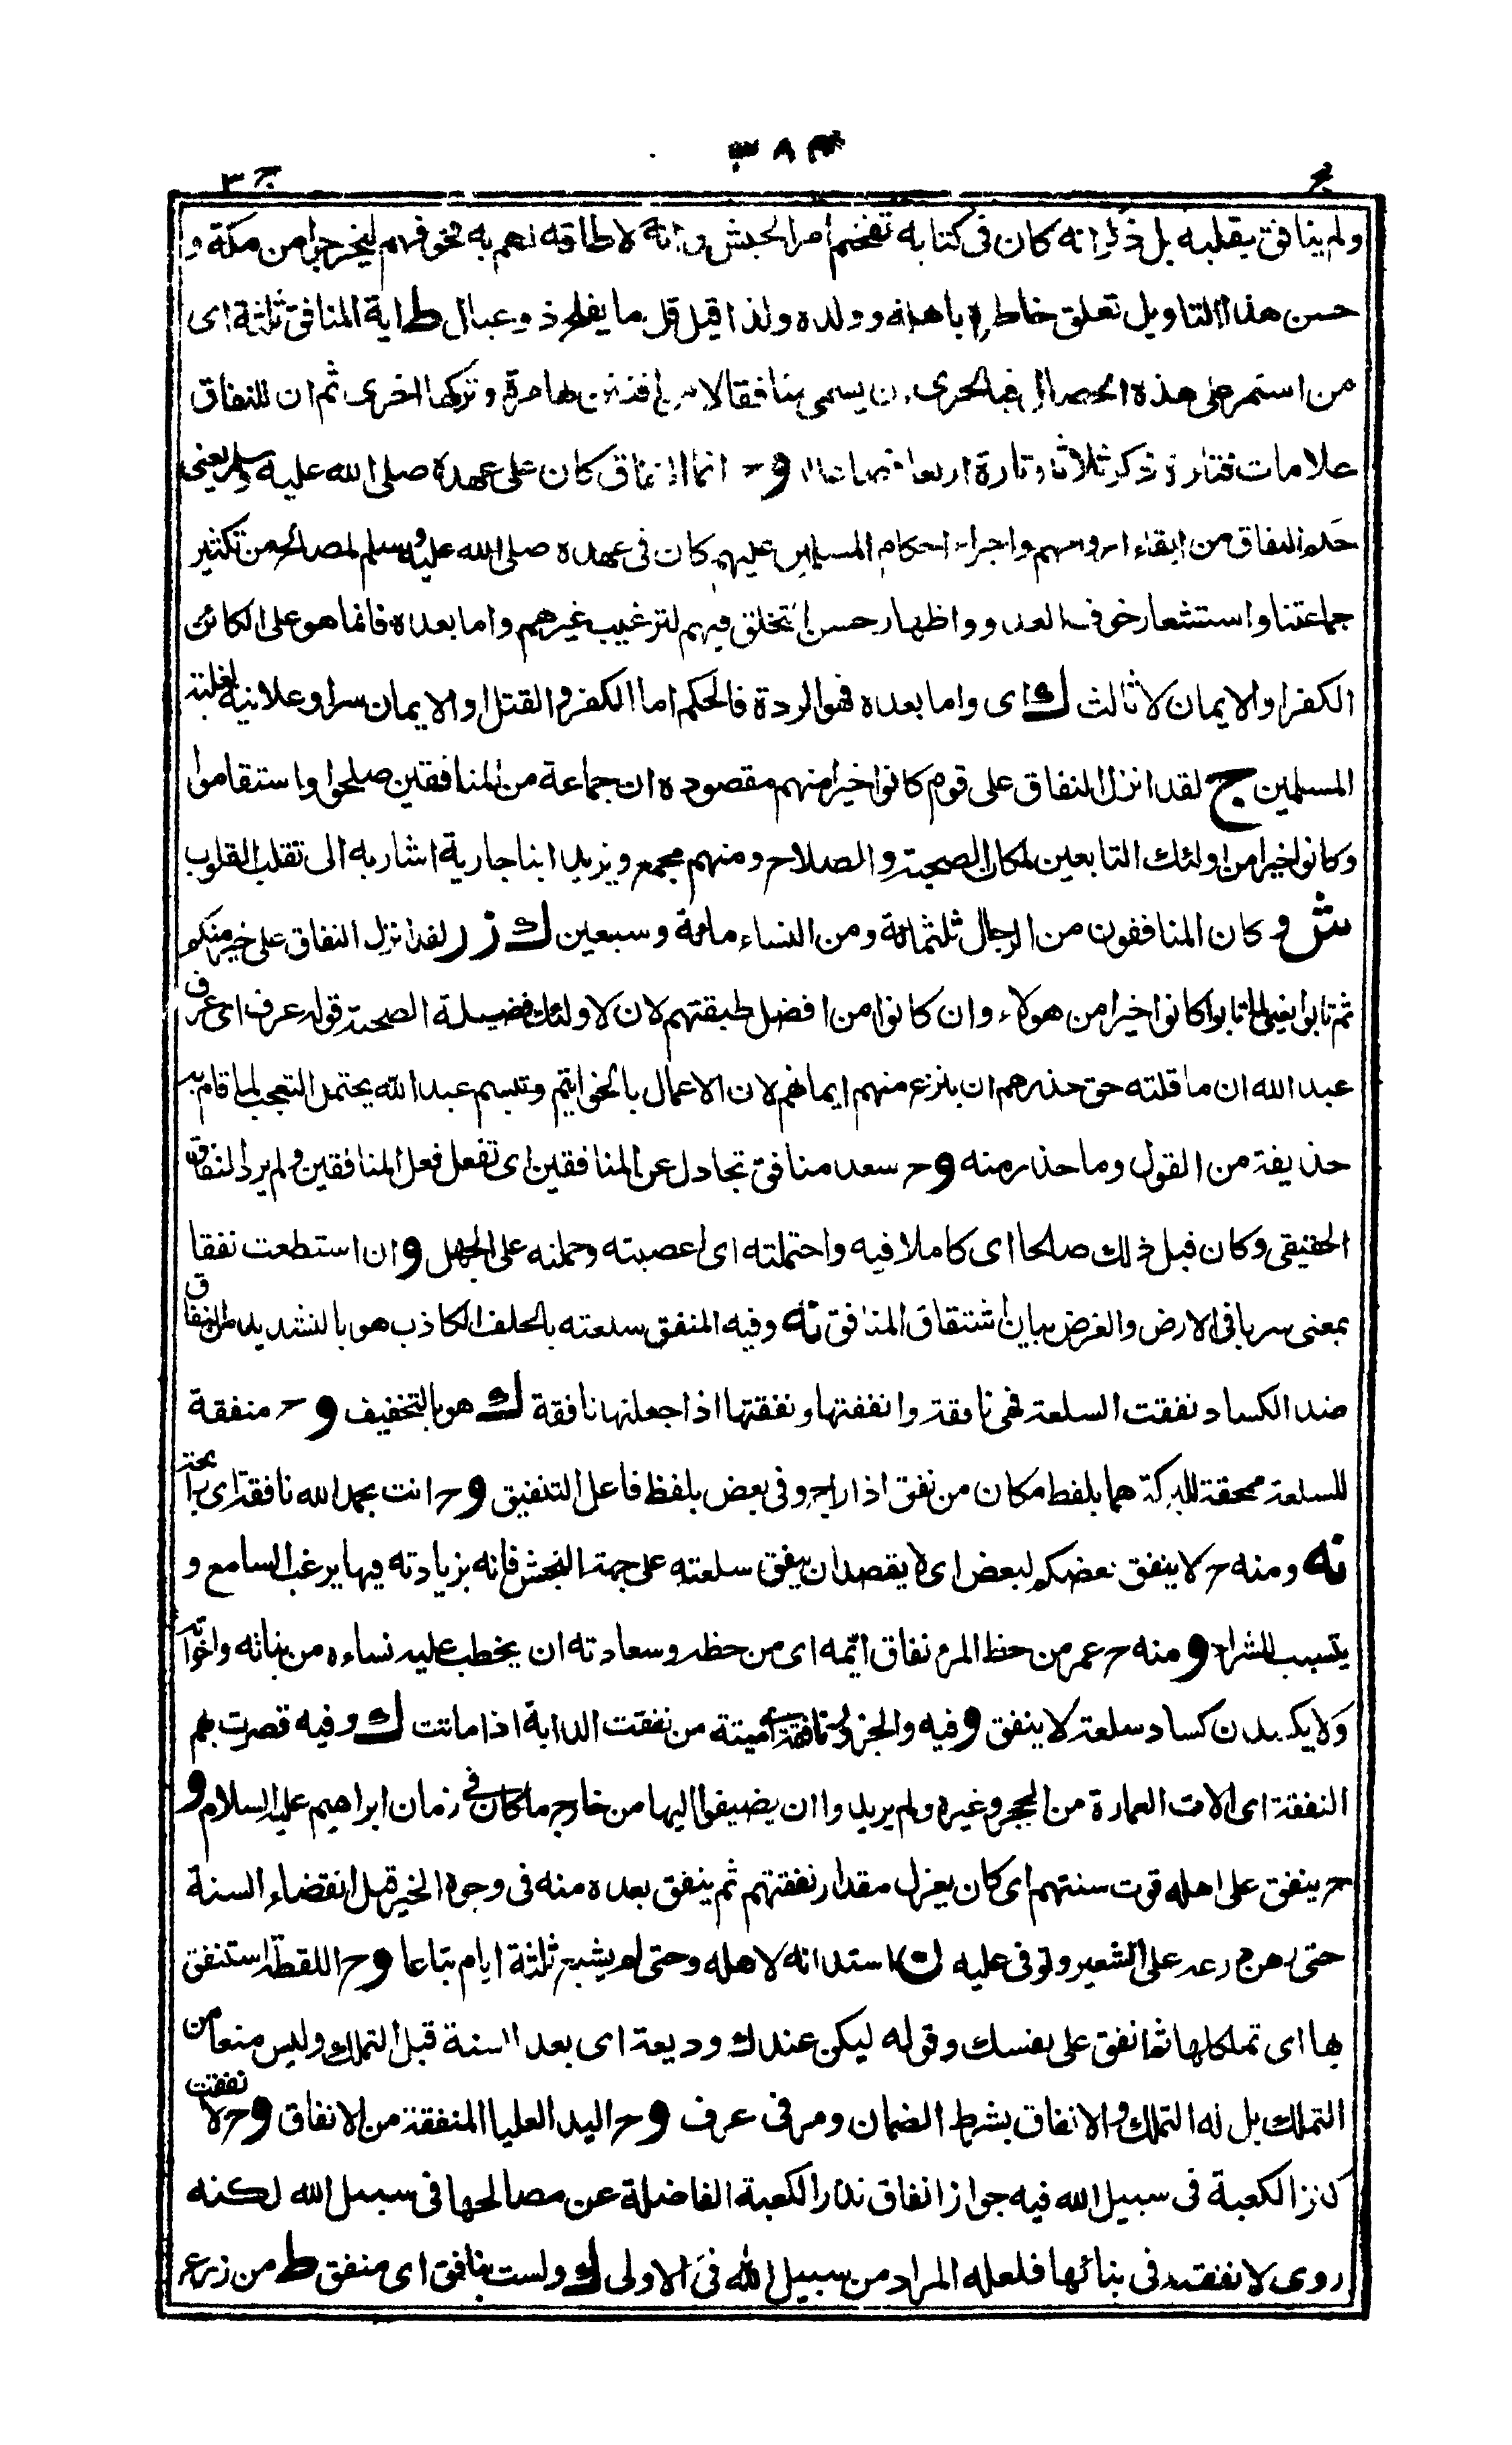 ٣٨٣
ج ٣
ولم ينافق بقلبه بل ذكر انه كان فى كتابه تفخيم امر الجيش وانه لا طاقة لهم به يخوفهم ليخرجوا من مكة و
حسن هذا التاويل تعلق خاطره باهله وولده ولذا قيل قل ما يفلح ذو عيال ط اية المنافق ثلثة اى
من استمر على هذه الخصال فبالحرى ان يسمى منافقا لا من بها مرة وتركها اخرى ثم ان للنفاق
علامات فتارة ذكر ثلاثا وتارة اربعا و ح انما النفاق كان على عهده صلى الله عليه وسلم يعنى
حكم النفاق من ابقاء ارواحهم واجراء احكام المسلمين عليهم كان فى عهده صلى الله عليه وسلم لمصالح من تكثير
جماعتنا واستشعار خوف العدو واظهار حسن التخلق فيهم لترغيب غيرهم واما بعده فانما هو على الكائن
الكفر او الايمان لا ثالث ك اى واما بعده فهو الردة فالحكم اما الكفر والقتل او الايمان سرا وعلانية لغلبة
المسلمين ج لقد انزل النفاق على قوم كانوا خيرا منهم مقصوده ان جماعة من المنافقين صلحوا واستقاموا
وكانوا خيرا من اولئك التابعين لمكان الصحبة والصلاح ومنهم مجمع ويزيد ابنا جارية اشار به الى تقلب القلوب
ش و كان المنافقون من الرجال ثلثمائة ومن النساء مائة وسبعين ك ز ر لقد انزل النفاق على خير منكم
ثم تابوا يعنى لما تابوا كانوا خيرا من هولاء وان كانوا من افضل طبقتهم لان لاولئك فضيلة الصحبة قوله عرف اى عرف
عبد الله ان ما قلته حق حذرهم ان ينزع منهم ايمانهم لان الاعمال بالخواتيم وتبسم عبد الله يحتمل التعجب لما قام به
حذيفة من القول وما حذر منه و ح سعد منافق تجادل عن المنافقين اى تفعل فعل المنافقين ولم يرد النفاق
الحقيقى وكان قبل ذلك صالحا اى كاملا فيه واحتملته اى اغضبته وحملته على الجهل و ان استطعت نفقا
بمعنى سربا فى الارض والغرض بيان اشتقاق المنافق نه وفيه المنفق سلعته بالحلف الكاذب هو بالتشديد من النفاق
ضد الكساد نفقت السلعة فهى نافقة وانفقتها ونفقتها اذا جعلتها نافقة ك هو بالتخفيف و ح منفقة
للسلعة ممحقة للبركة هما بلفظ مكان من نفق اذا راج وفى بعض بلفظ فاعل التنفيق و ح انت بحمد الله نافقة اى رائجة
نه ومنه ح لا ينفق بعضكم لبعض اى لا يقصد ان ينفق سلعته على جهة النجش فانه بزيادته فيها يرغب السامع و
يتسبب للشراء و منه ح عمر من حظ المرء نفاق ايمه اى من حظه وسعادته ان يخطب عليه نساءه من بناته واخواته
ولا يكسدن كساد سلعة لا ينفق و فيه والجزور نافقة اى ميتة من نفقت الدابة اذا ماتت ك وفيه قصرت بهم
النفقة اى الات العمارة من الحجر وغيره ولم يريدوا ان يضيفوا اليها من خارج ما كان فى زمان ابراهيم عليه السلام و
ح ينفق على اهله قوت سنتهم اى كان يعزل مقدار نفقتهم ثم ينفق بعده منه فى وجوه الخير قبل انقضاء السنة
حتى رهن درعه على الشعير وتوفى عليه ن استدانه لاهله وحتى لم يشبع ثلثة ايام تباعا و ح اللقطة استنفق
بها اى تملكها ثم انفق على نفسك وقوله ليكن عندك وديعة اى بعد السنة قبل التملك وليس منعا من
التملك بل له التملك والانفاق بشرط الضمان ومر فى عرف و ح اليد العليا المنفقة من الانفاق و ح لانفقت
كنز الكعبة فى سبيل الله فيه جواز انفاق نذر الكعبة الفاضلة عن مصالحها فى سبيل الله لكنه
روى لا نفقته فى بنائها فلعله المراد من سبيل الله فى الاولى ك ولست بنافق اى منفق ط من زرع